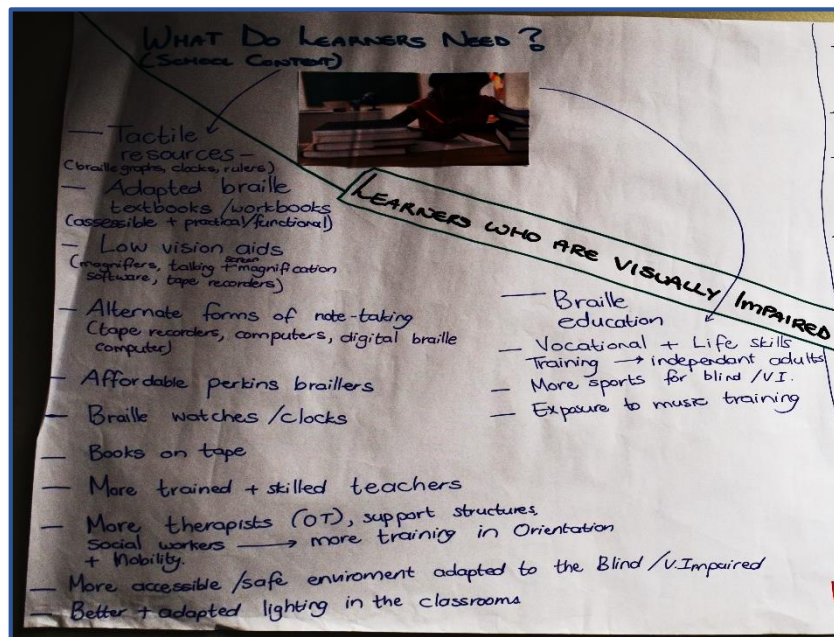 WHAT DO LEARNERS NEED?
(SCHOOL CONTEXT)
— Tactile
resources –
(braille graphs, clocks, rulers)
— Adapted braille
textbooks/workbooks
(assessible + practical/functional)
— Low vision aids
(magnifiers, talking + screen magnification
software, tape recorders)
— Alternate forms of note-taking
(tape recorders, computers, digital braille
computer)
— Affordable perkins braillers
— Braille watches/clocks
— Books on tape
— More trained + skilled teachers
— More therapists (OT), support structures,
social workers → more training in Orientation
+ Mobility.
— More accessible/safe enviroment adapted to the Blind/V.Impaired
— Better + adapted lighting in the classrooms
LEARNERS WHO ARE VISUALLY IMPAIRED
— Braille
education
— Vocational + Life skills
Training → independant adults
— More sports for blind/V.I.
— Exposure to music training